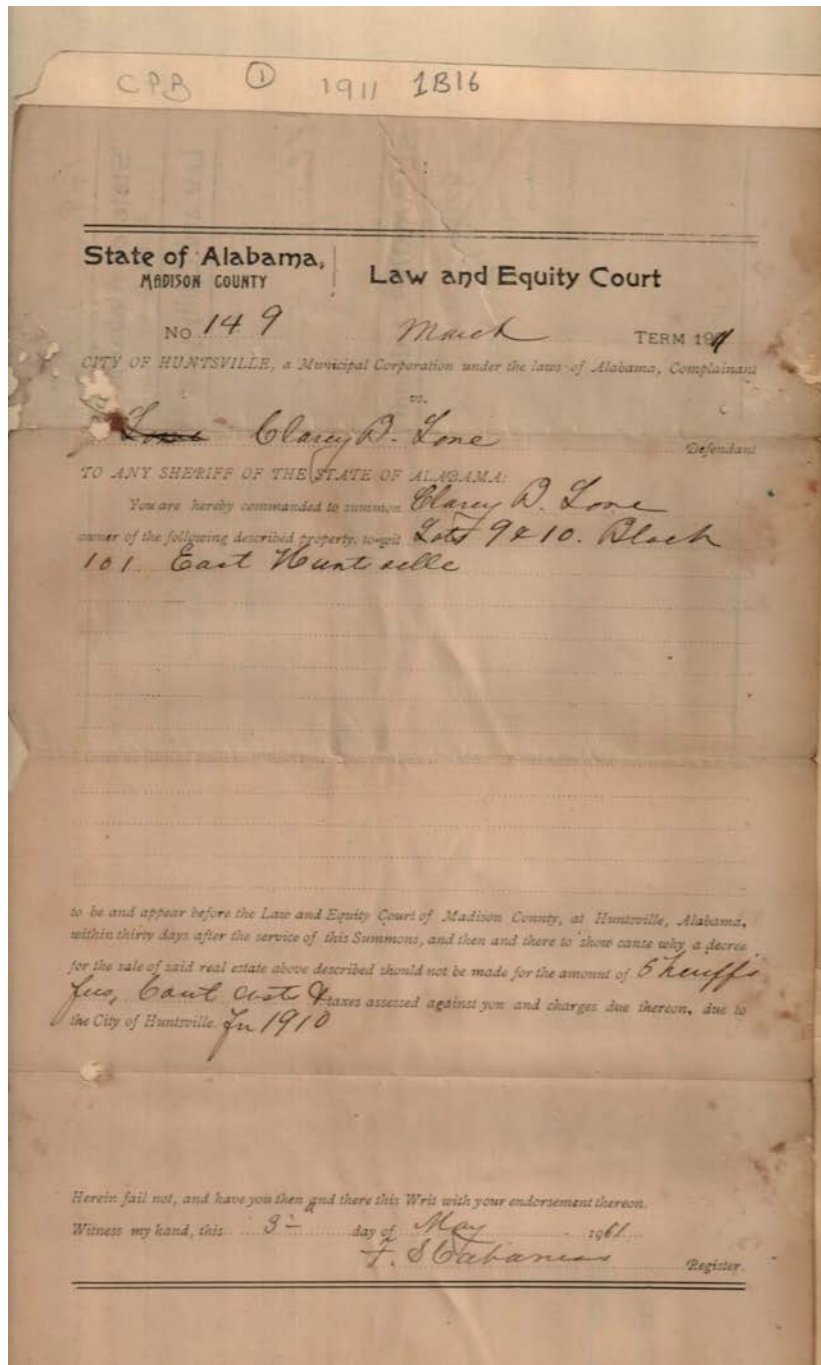 CPB ① 1911 1B16
State of Alabama, Law and Equity Court
MADISON COUNTY
No 149 March TERM 1911
CITY OF HUNTSVILLE, a Municipal Corporation under the laws of Alabama, Complainant
vs.
Clarey B. Lone Defendant
TO ANY SHERIFF OF THE STATE OF ALABAMA:
You are hereby commanded to summon Clarey B. Lone
owner of the following described property, to-wit Lots 9 & 10. Block
101 East Huntsville
to be and appear before the Law and Equity Court of Madison County, at Huntsville, Alabama,
within thirty days after the service of this Summons, and then and there to show cause why a decree
for the sale of said real estate above described should not be made for the amount of Sheriff's
fees, Court Costs & taxes assessed against you and charges due thereon, due to
the City of Huntsville. For 1910
Herein fail not, and have you then and there this Writ with your endorsement thereon.
Witness my hand, this 3 day of May 1911
F. S Cabaness Register.